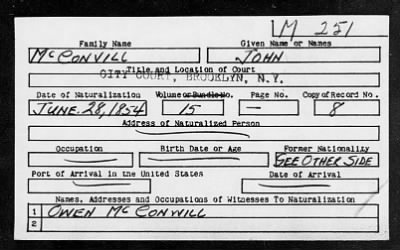 M 251
Family Name Given Name or Names
McCONVILL JOHN
Title and Location of Court
CITY COURT, BROOKLYN, N.Y.
Date of Naturalization Volume or Bundle No. Page No. Copy of Record No.
JUNE. 28, 1854 15 — 8
Address of Naturalized Person
Occupation Birth Date or Age Former Nationality
SEE OTHER SIDE
Port of Arrival in the United States Date of Arrival
Names, Addresses and Occupations of Witnesses To Naturalization
1 OWEN McCONVILL
2